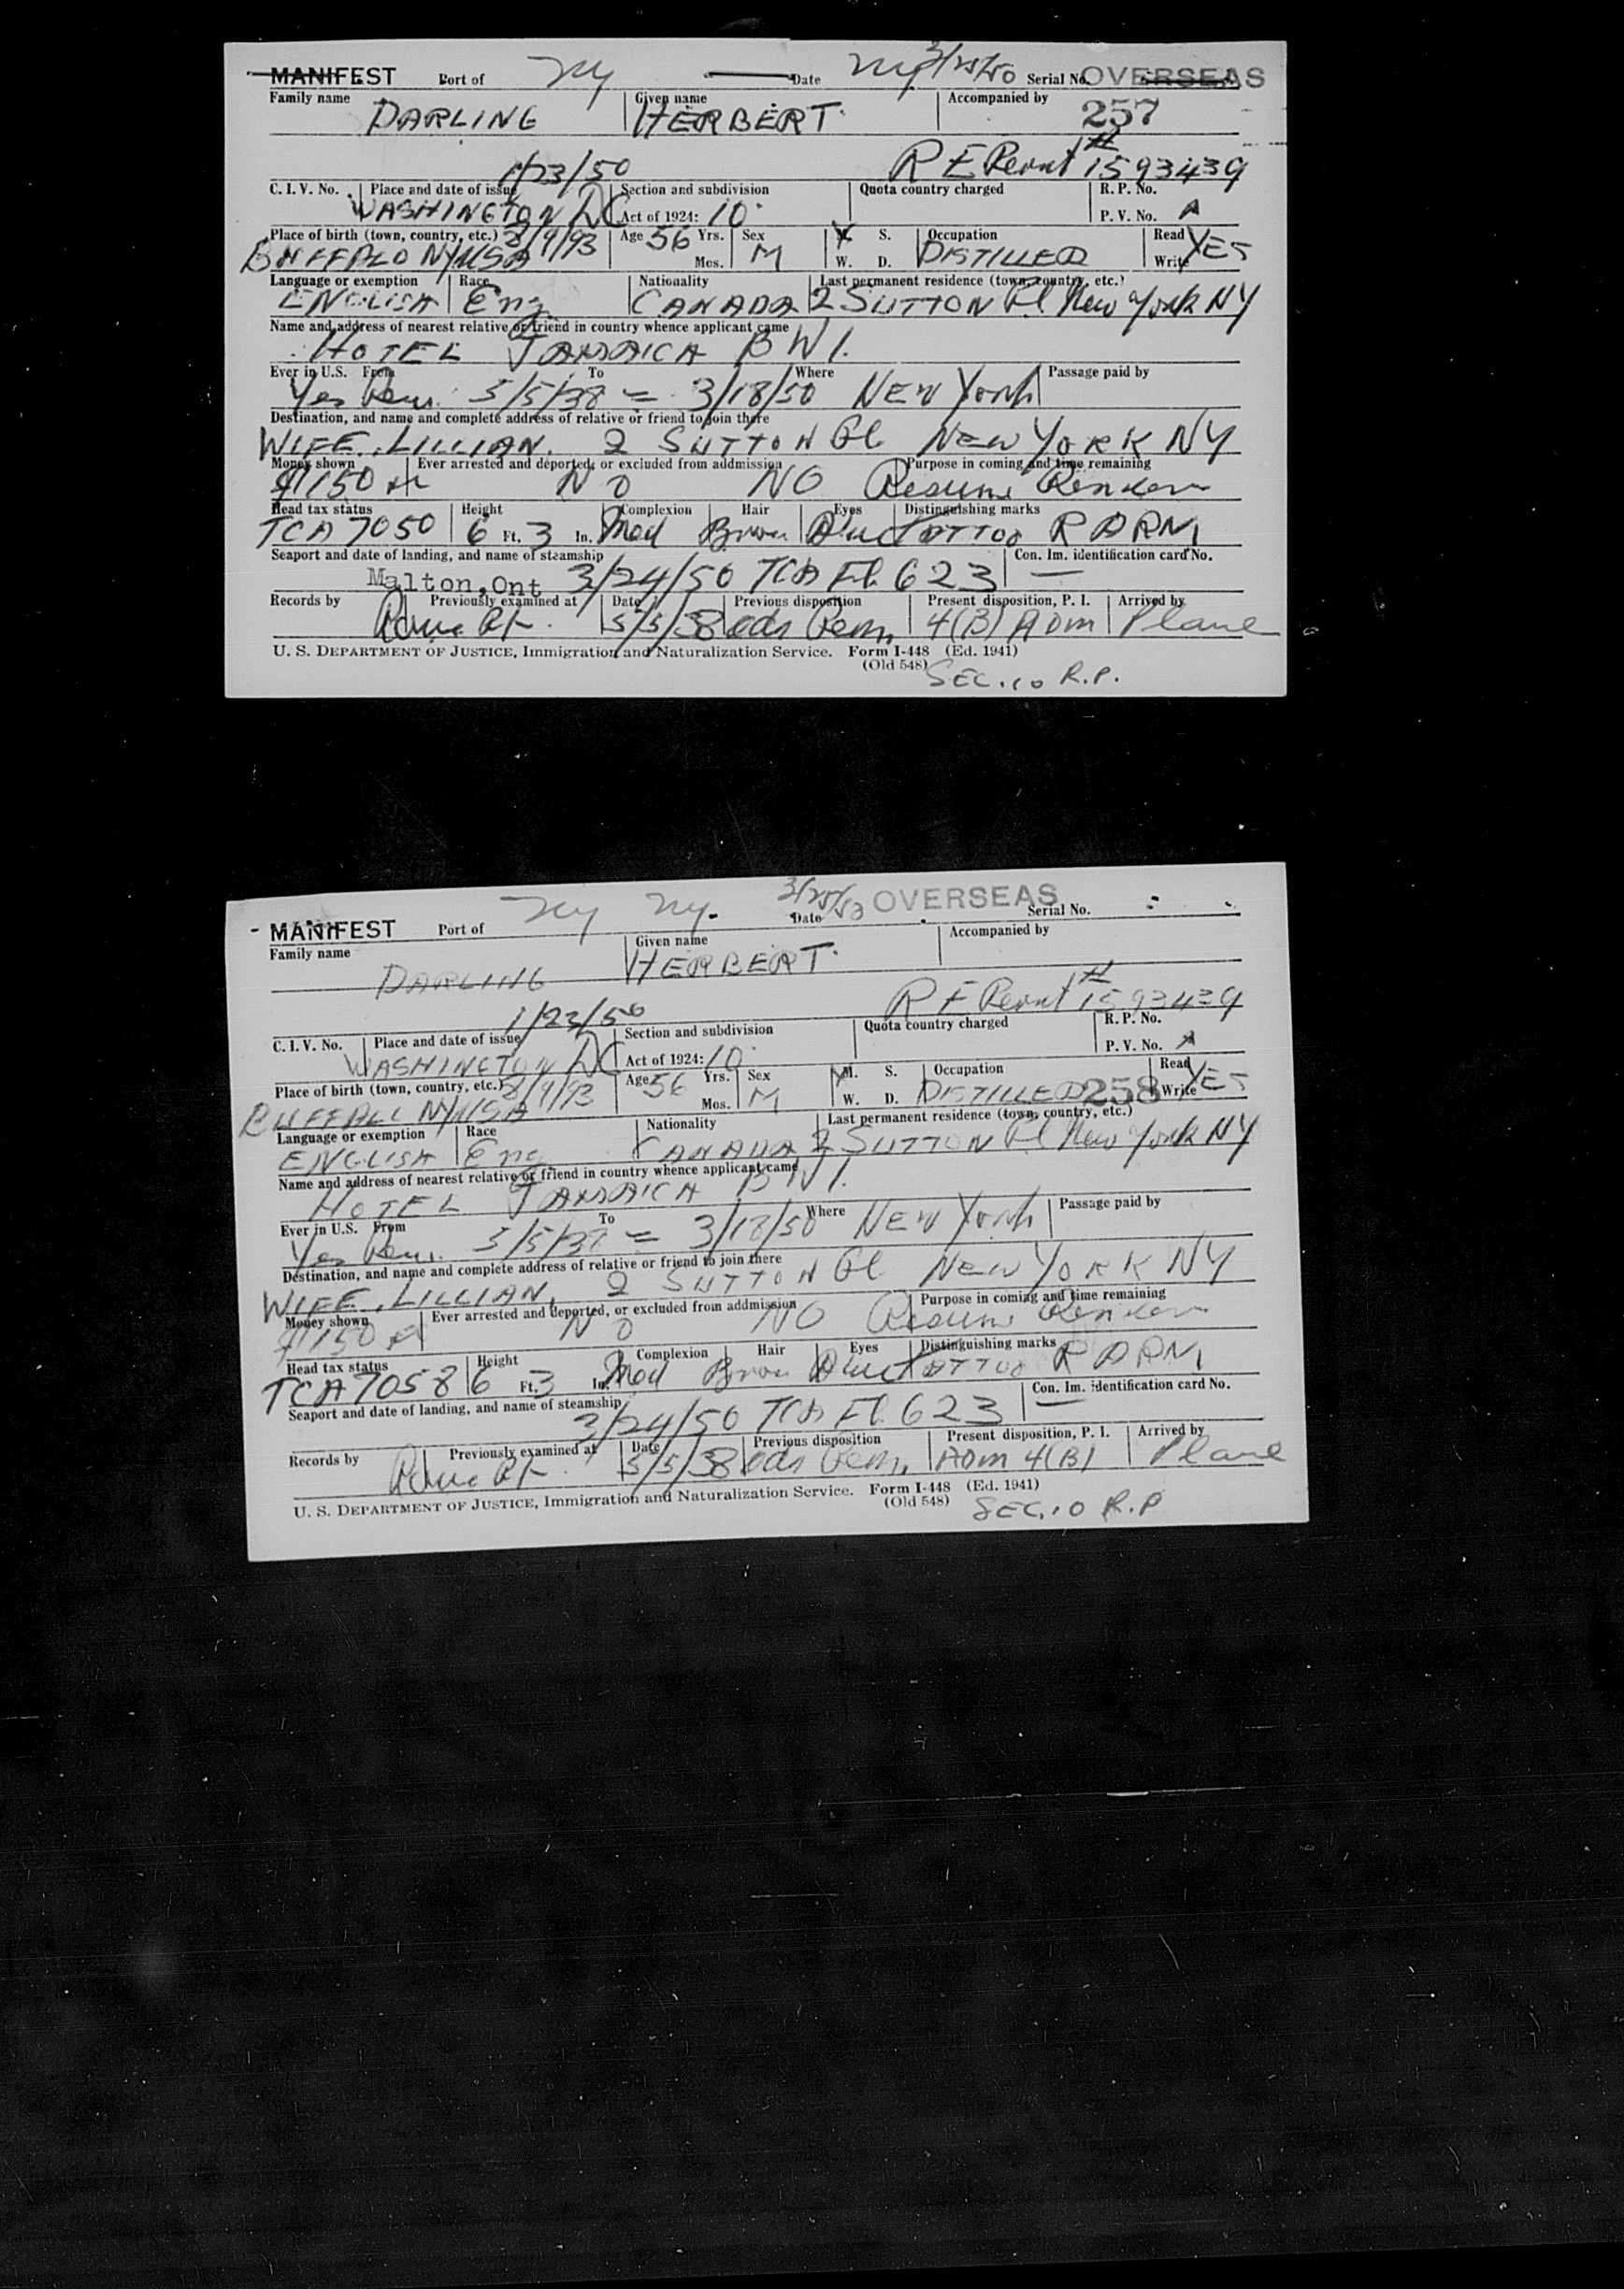 MANIFEST Port of NY Date NY 3/25/50 Serial No. OVERSEAS
Family name Given name Accompanied by
DARLING HERBERT. 257
1/23/50 R E Permit # 1593439
C. I. V. No. Place and date of issue Section and subdivision Quota country charged R. P. No.
WASHINGTON DC Act of 1924: 10. P. V. No. A
Place of birth (town, country, etc.) 8/9/93 Age 56 Yrs. Sex M. S. Occupation Read YES
BUFFALO NY USA Mos. M W. D. DISTILLER Write
Language or exemption Race Nationality Last permanent residence (town, country, etc.)
ENGLISH Eng CANADA 2 SUTTON Pl New York NY
Name and address of nearest relative or friend in country whence applicant came
HOTEL JAMAICA BWI.
Ever in U.S. From To Where Passage paid by
Yes Perm. 5/5/38 = 3/18/50 NEW York
Destination, and name and complete address of relative or friend to join there
WIFE, LILLIAN. 2 SUTTON Pl NEW YORK NY
Money shown Ever arrested and deported, or excluded from addmission Purpose in coming and time remaining
$1150 NO NO Resume Residence
Head tax status Height Complexion Hair Eyes Distinguishing marks
TCA 7050 6 Ft. 3 In. Med Brown Blue TATTOO R ARM
Seaport and date of landing, and name of steamship Con. Im. identification card No.
Malton, Ont 3/24/50 TCA Fl. 623 —
Records by Previously examined at Date Previous disposition Present disposition, P. I. Arrived by
5/5/38 Perm, 4(B) ADM Plane
U. S. DEPARTMENT OF JUSTICE, Immigration and Naturalization Service. Form I-448 (Ed. 1941)
(Old 548)
SEC. 10 R.P.
MANIFEST Port of NY NY. Date 3/25/50 OVERSEAS Serial No.
Family name Given name Accompanied by
DARLING HERBERT.
1/23/50 R E Permit # 1593439
C. I. V. No. Place and date of issue Section and subdivision Quota country charged R. P. No.
WASHINGTON DC Act of 1924: 10. P. V. No. A
Place of birth (town, country, etc.) 8/9/93 Age 56 Yrs. Sex M. S. Occupation Read YES
BUFFALO NY USA Mos. M W. D. DISTILLER 258 Write
Language or exemption Race Nationality Last permanent residence (town, country, etc.)
ENGLISH Eng CANADA 2 SUTTON Pl New York NY
Name and address of nearest relative or friend in country whence applicant came
HOTEL JAMAICA BWI.
Ever in U.S. From To Where Passage paid by
Yes Perm. 5/5/38 = 3/18/50 NEW York
Destination, and name and complete address of relative or friend to join there
WIFE, LILLIAN, 2 SUTTON Pl NEW YORK NY
Money shown Ever arrested and deported, or excluded from addmission Purpose in coming and time remaining
$1150 NO NO Resume Residence
Head tax status Height Complexion Hair Eyes Distinguishing marks
TCA 7058 6 Ft. 3 In. Med Brown Blue TATTOO R ARM
Seaport and date of landing, and name of steamship Con. Im. identification card No.
3/24/50 TCA Fl. 623 —
Records by Previously examined at Date Previous disposition Present disposition, P. I. Arrived by
5/5/38 Perm, ADM 4(B) Plane
U. S. DEPARTMENT OF JUSTICE, Immigration and Naturalization Service. Form I-448 (Ed. 1941)
(Old 548)
SEC. 10 R.P